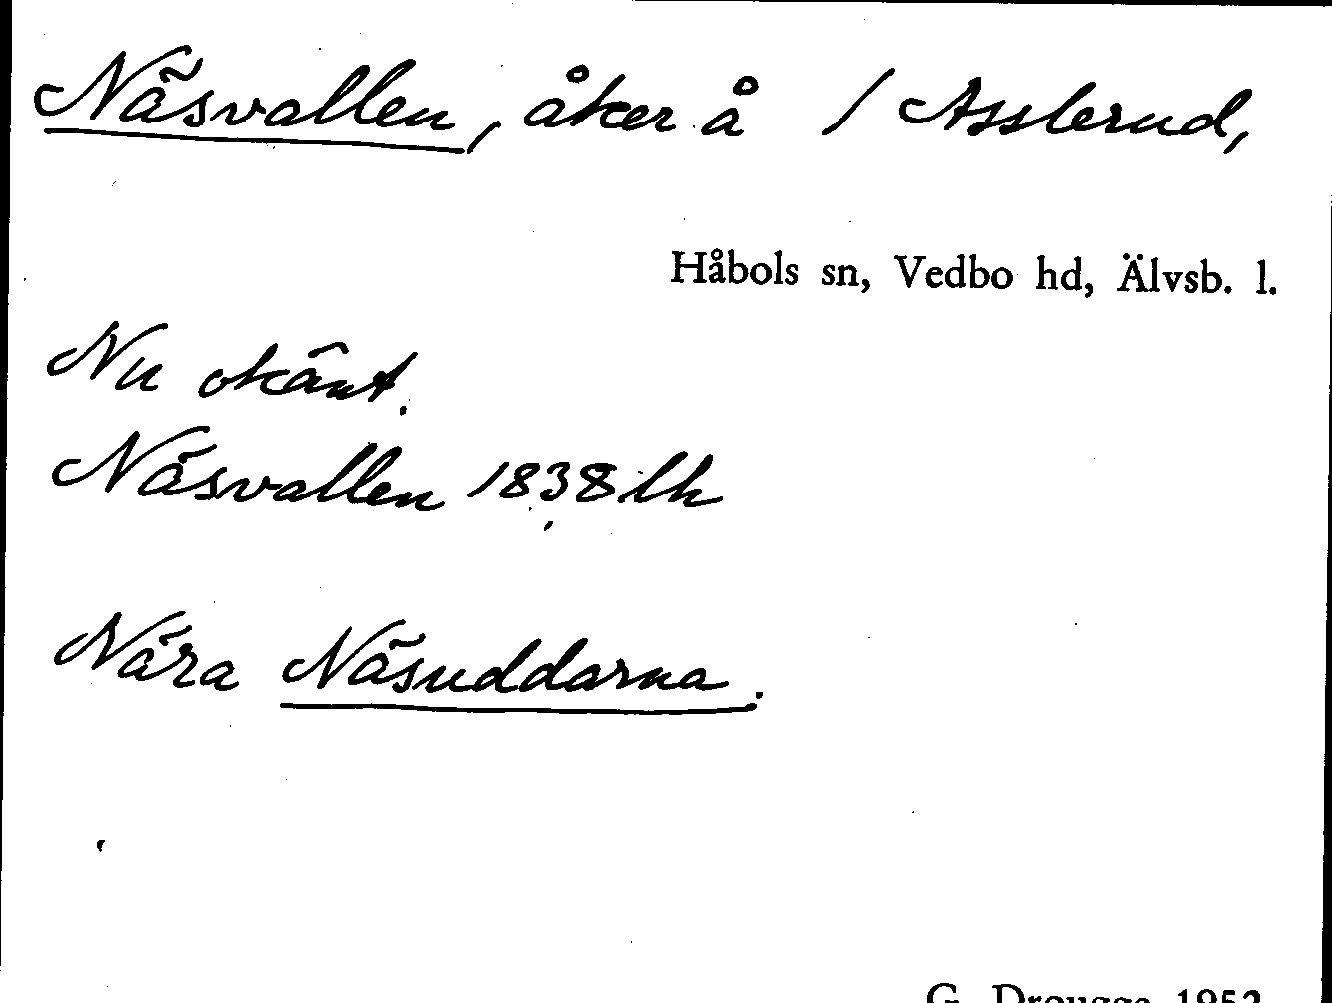 Näsvallen, åker å / Asslerud,
Håbols sn, Vedbo hd, Älvsb. l.
Nu okänt.
Näsvallen 1838 lh
Nära Näsuddarna.
G. Drougge 1952